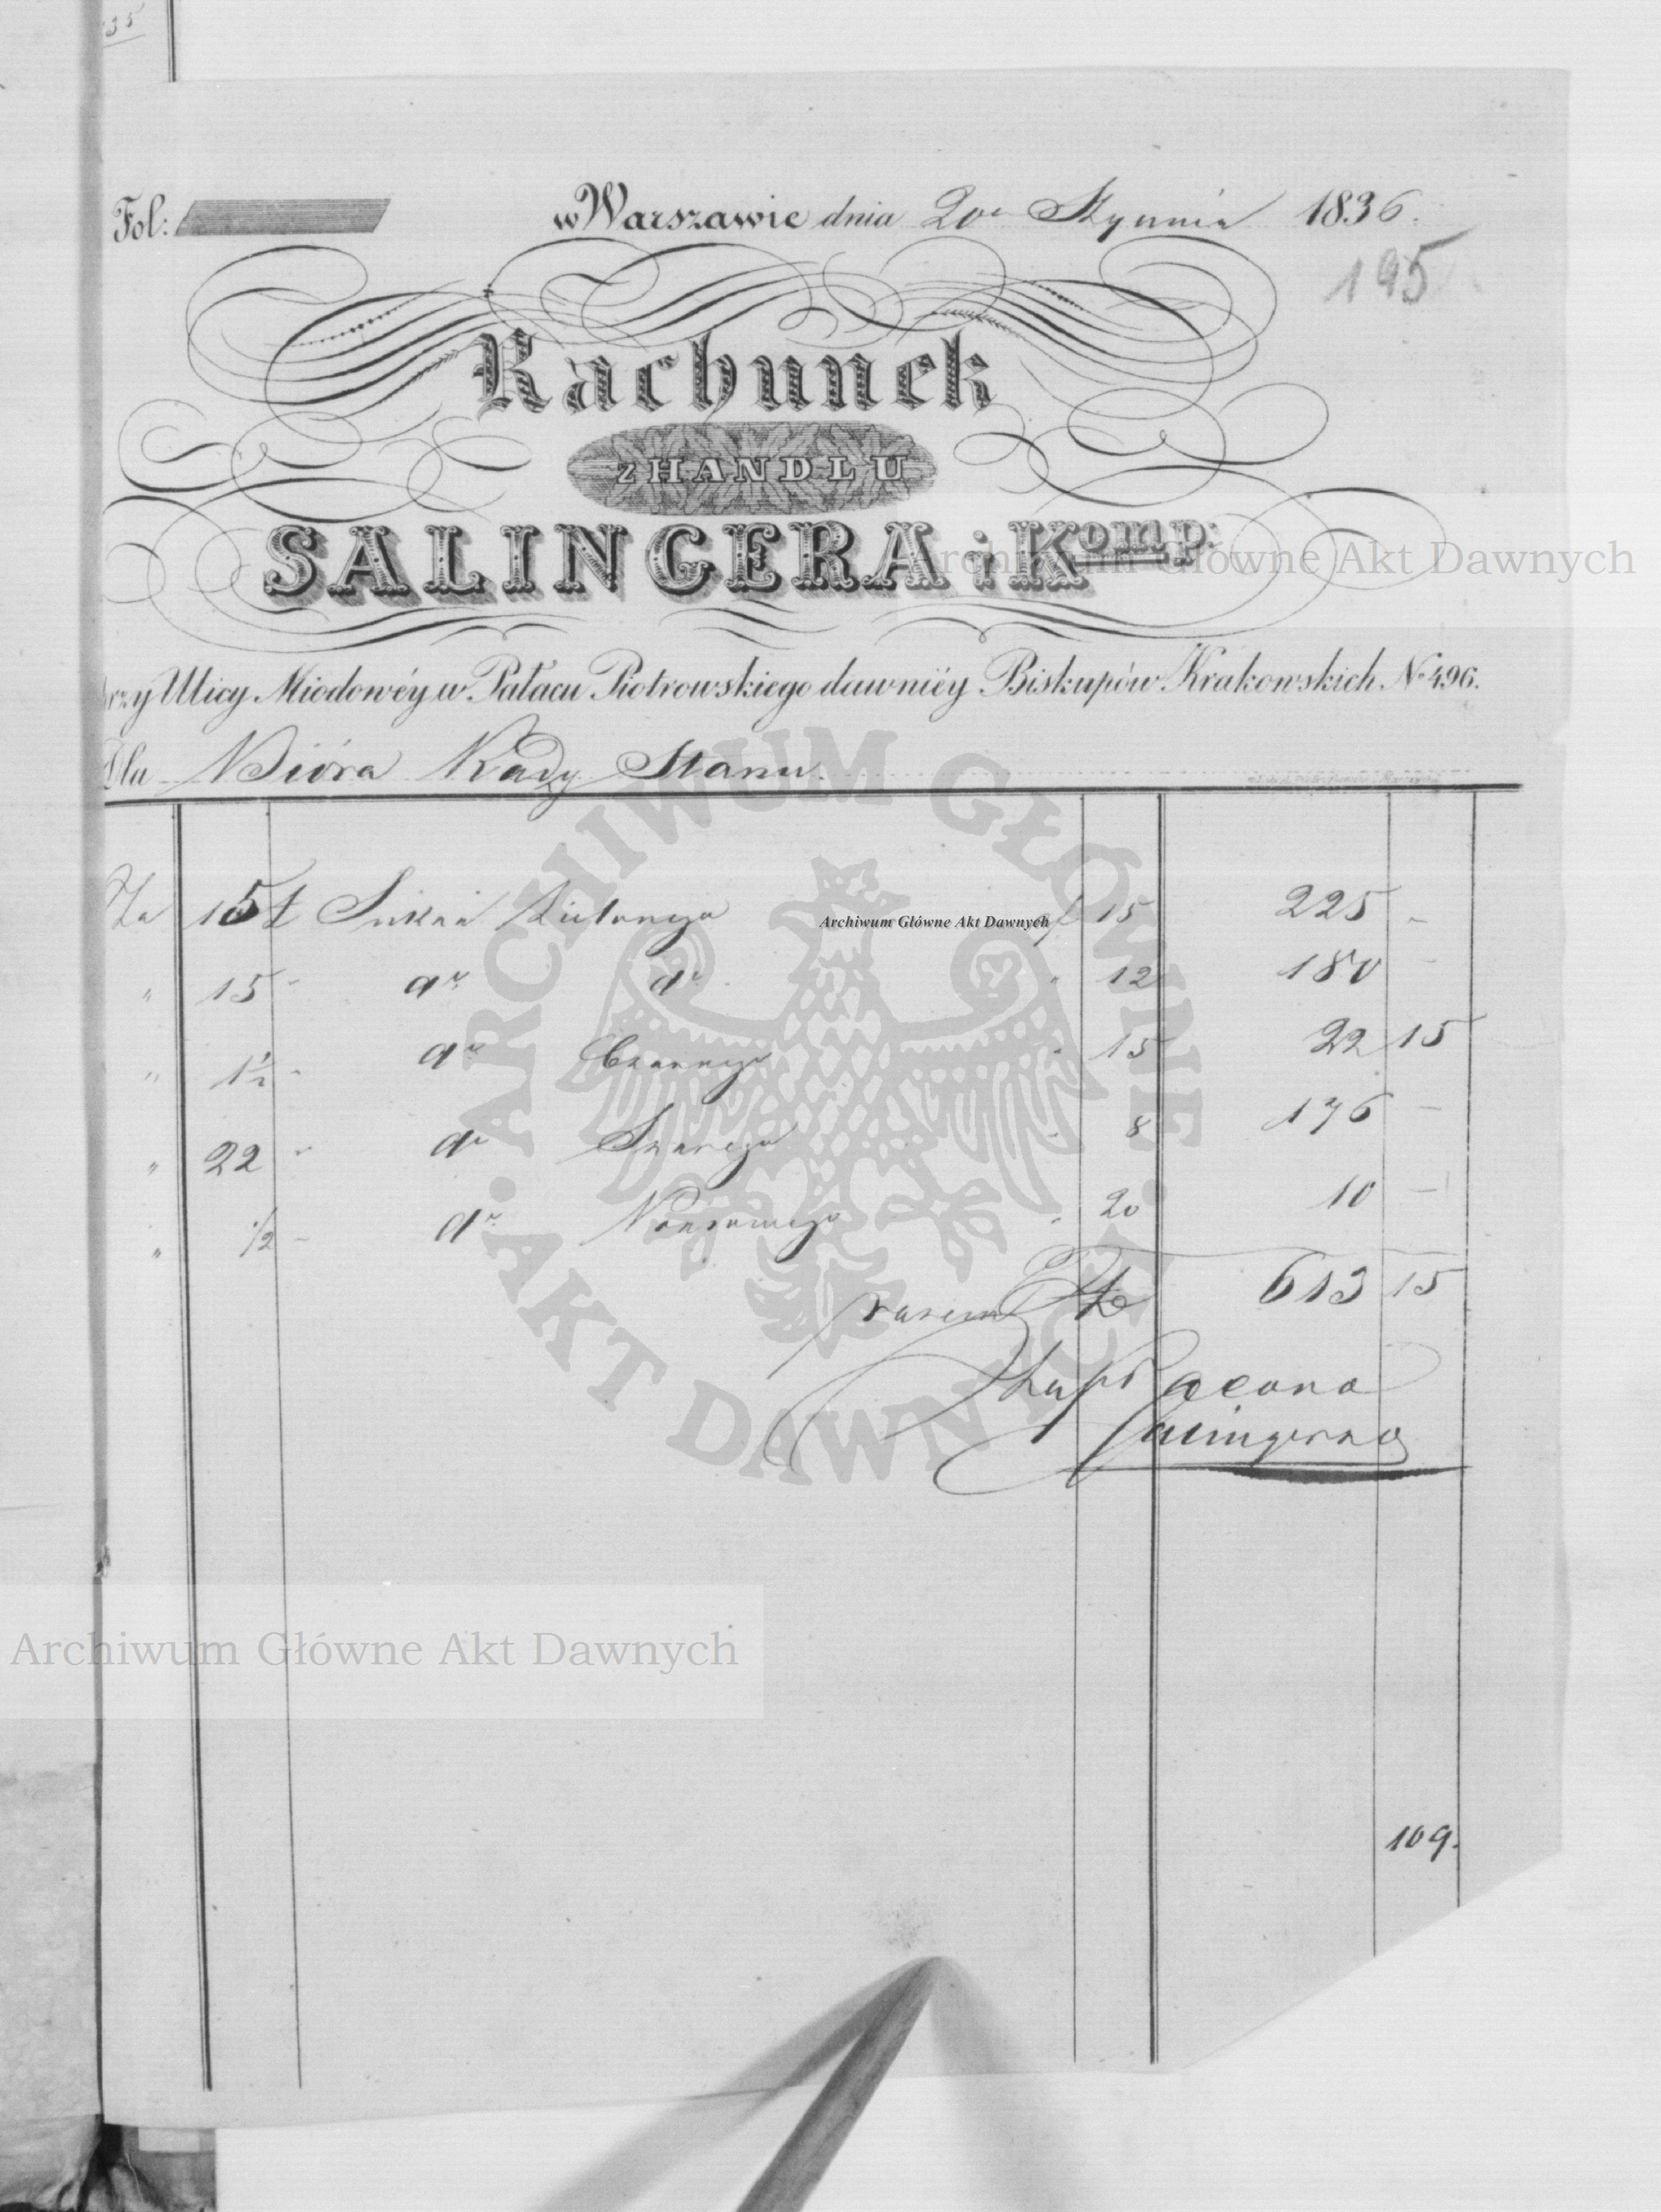 35
Fol:
w Warszawie dnia 20 Stycznia 1836.
195
Rachunek
z HANDLU
SALINGERA i Komp:
Archiwum Główne Akt Dawnych
przy Ulicy Miodowéy w Pałacu Piotrowskiego dawniéy Biskupów Krakowskich No 496.
Dla Bióra Rady Stanu.
ARCHIWUM GŁÓWNE AKT DAWNYCH
Za 15 ł Sukna Zielonego f 15 225 -
Archiwum Główne Akt Dawnych
" 15 - do do " 12 180 -
" 1½ - do Czarnego " 15 22 15
" 22 " do Szarego " 8 176 -
" ½ - do Ponsowego " 20 10 -
razem 613 15
Zapłacono
Salinger
Archiwum Główne Akt Dawnych
109.